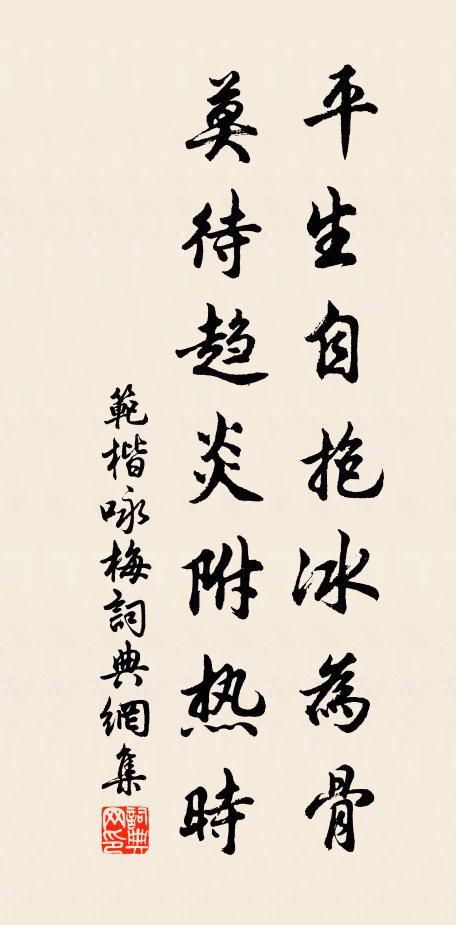 平生自抱冰為骨
莫待趨炎附热時
範楷咏梅詞典網集
詞典网印